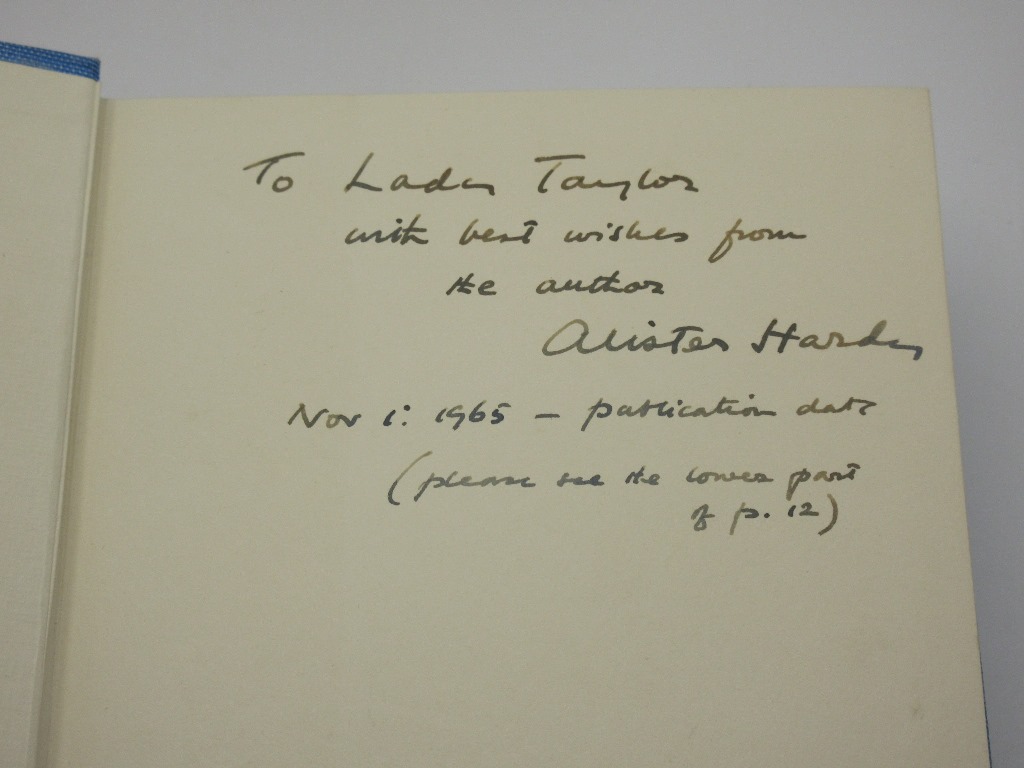 To Lady Taylor
with best wishes from
the author
Alister Hardy
Nov 1: 1965 — publication date
(please see the lower part
of p. 12)